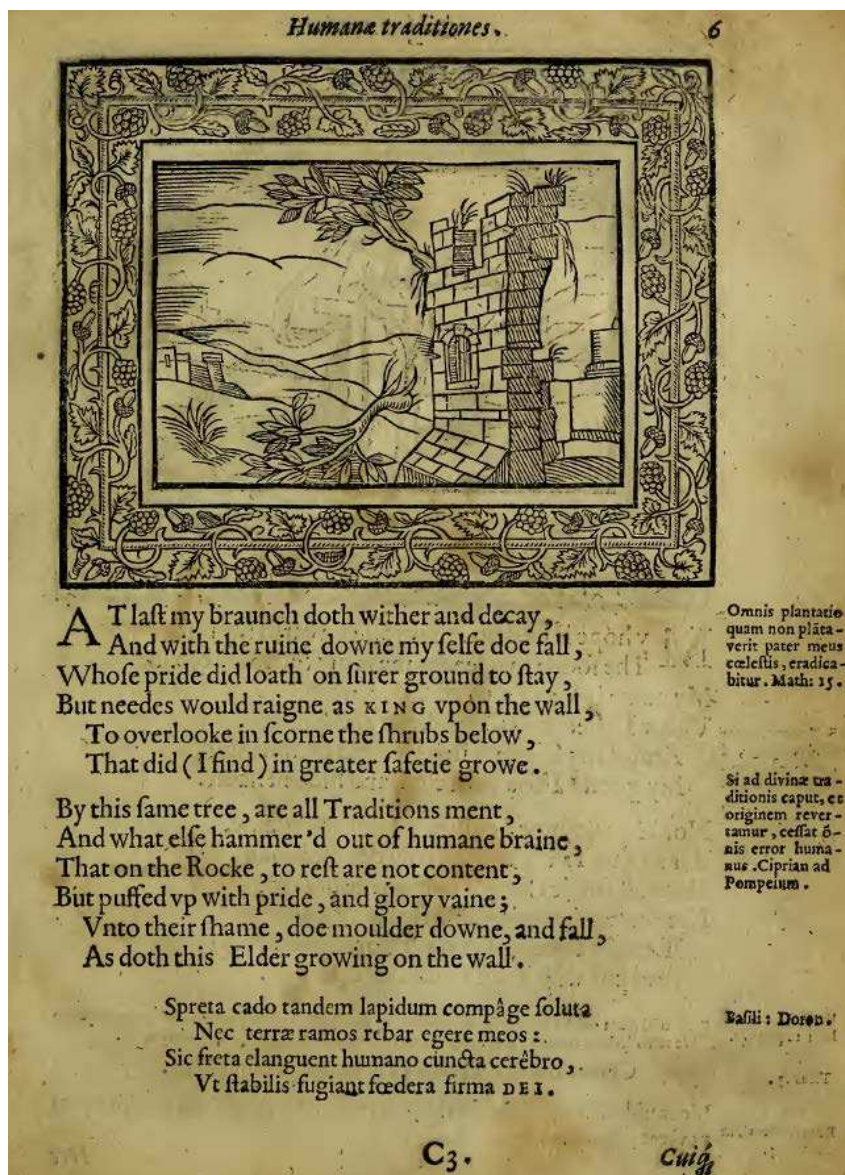 Humanæ traditiones.
6
AT laſt my braunch doth wither and decay,
And with the ruine downe my ſelfe doe fall,
Whoſe pride did loath on ſurer ground to ſtay,
But needes would raigne as KING vpon the wall,
To overlooke in ſcorne the ſhrubs below,
That did (I find) in greater ſafetie growe.
By this ſame tree, are all Traditions ment,
And what elſe hammer'd out of humane braine,
That on the Rocke, to reſt are not content,
But puffed vp with pride, and glory vaine;
Vnto their ſhame, doe moulder downe, and fall,
As doth this Elder growing on the wall.
Spreta cado tandem lapidum compâge ſoluta
Nec terræ ramos rebar egere meos:
Sic freta elanguent humano cuncta cerêbro,
Vt ſtabilis fugiant fœdera firma DEI.
Omnis plantatio
quam non plāta-
verit pater meus
cœleſtis, eradica-
bitur. Math: 15.
Si ad divinæ tra-
ditionis caput, et
originem rever-
tamur, ceſſat ō-
nis error huma-
nus. Ciprian ad
Pompeium.
Baſili: Doron.
C3.
Cuiq́